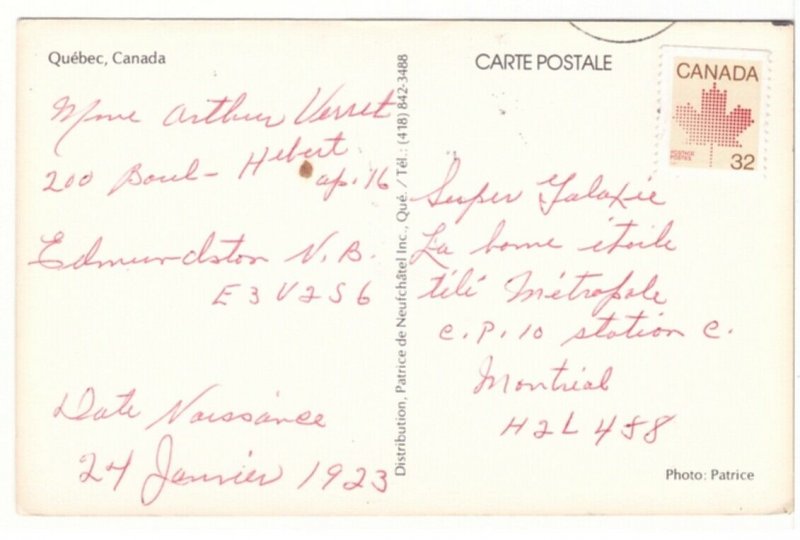 Québec, Canada
Mme Arthur Verret
200 Boul - Hebert
ap. 16
Edmundston N.B.
E3V2S6
Date Naissance
24 Janvier 1923
Distribution, Patrice de Neufchâtel Inc., Qué. / Tél.: (418) 842-3488
CARTE POSTALE
CANADA
POSTAGE
POSTES
32
Super Galaxie
La bonne étoile
télé Métropole
C.P. 10 station C.
Montréal
H2L 4S8
Photo: Patrice